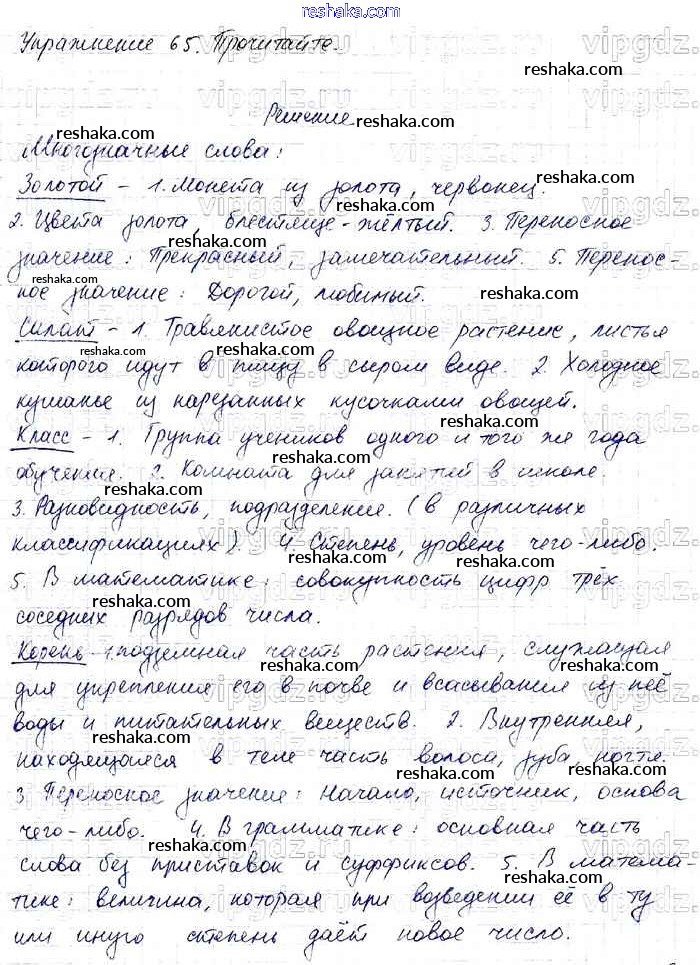 reshaka.com
Упражнение 65. Прочитайте.
reshaka.com
Решение
reshaka.com
reshaka.com
Многозначные слова:
Золотой - 1. Монета из золота, червонец.
reshaka.com
reshaka.com
2. Цвета золота, блестяще-жёлтый. 3. Переносное
значение: Прекрасный, замечательный. 5. Перенос-
reshaka.com
ное значение: Дорогой, любимый.
reshaka.com
Салат - 1. Травянистое овощное растение, листья
reshaka.com
reshaka.com
которого идут в пищу в сыром виде. 2. Холодное
кушанье из нарезанных кусочками овощей.
reshaka.com
Класс - 1. Группа учеников одного и того же года
обучения. 2. Комната для занятий в школе.
reshaka.com
reshaka.com
3. Разновидность, подразделение. (в различных
классификациях). 4. Степень, уровень чего-либо.
reshaka.com
5. В математике: совокупность цифр трёх
reshaka.com
соседних разрядов числа.
reshaka.com
Корень - 1. подземная часть растения, служащая
reshaka.com
reshaka.com
для укрепления его в почве и всасывания из неё
воды и питательных веществ. 2. Внутренняя,
reshaka.com
находящаяся в теле часть волоса, зуба, ногтя.
reshaka.com
reshaka.com
3. Переносное значение: Начало, источник, основа
чего-либо. 4. В грамматике: основная часть
reshaka.com
reshaka.com
слова без приставок и суффиксов. 5. В матема-
тике: величина, которая при возведении её в ту
reshaka.com
reshaka.com
или иную степень даёт новое число.